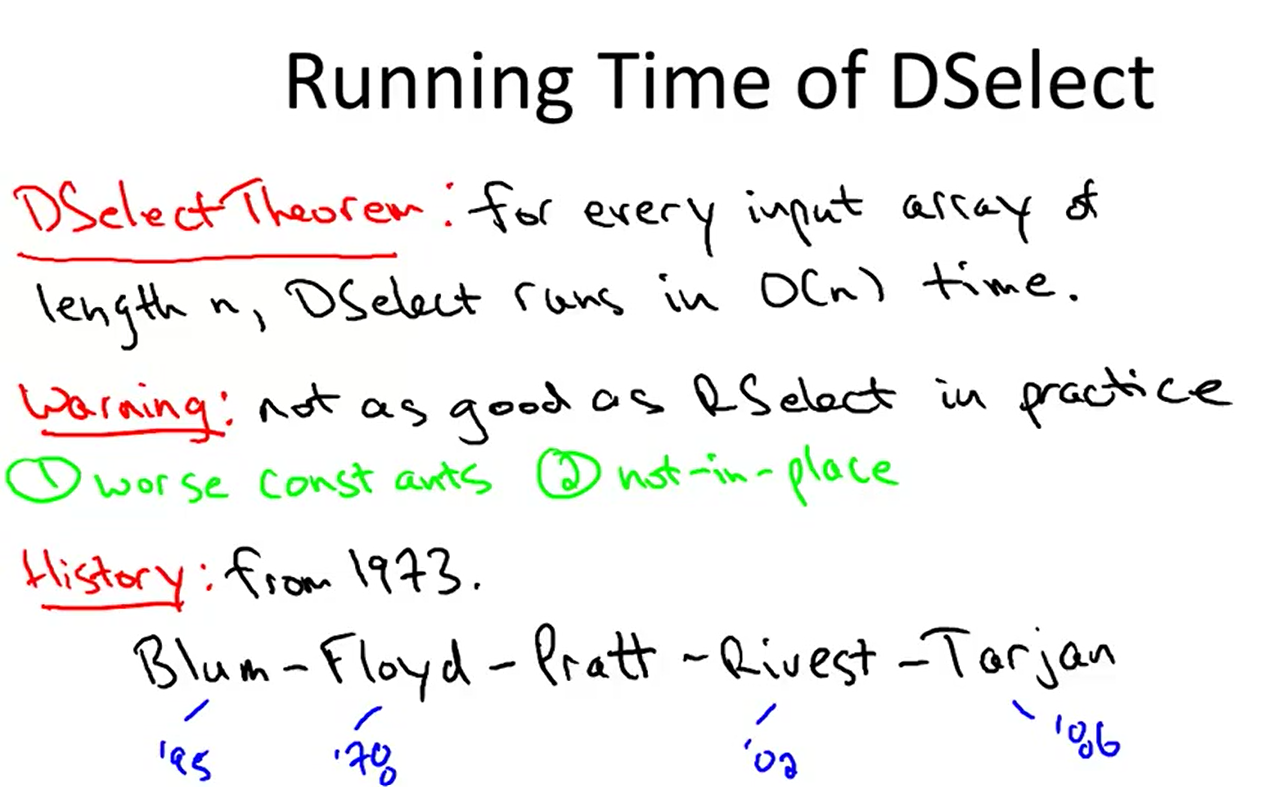 Running Time of DSelect
DSelect Theorem: for every input array of
length n, DSelect runs in O(n) time.
Warning: not as good as RSelect in practice
① worse constants ② not-in-place
History: from 1973.
Blum - Floyd - Pratt - Rivest - Tarjan
'95 '78 '02 '86